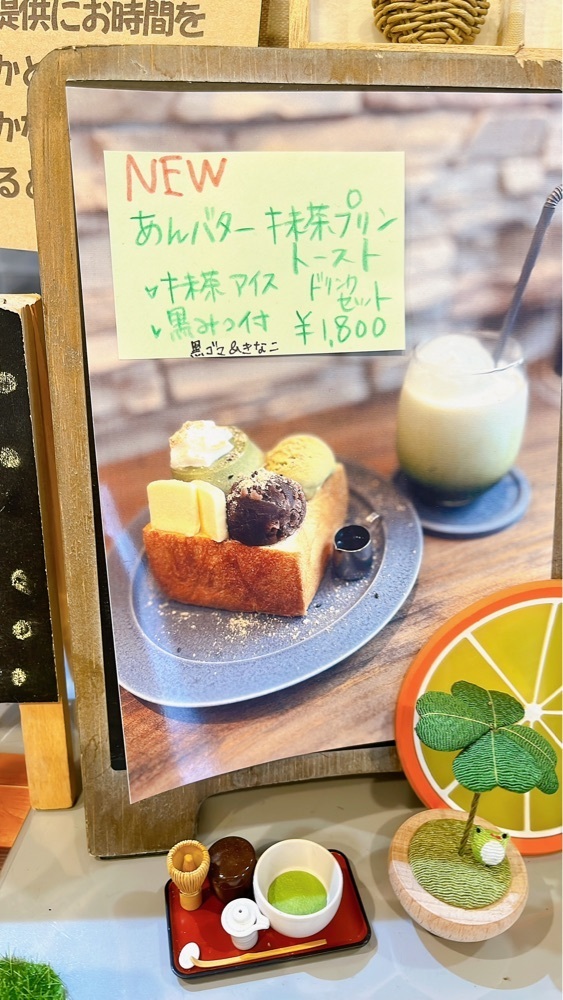 提供にお時間を
NEW
あんバター 抹茶プリン
トースト
抹茶アイス
黒みつ付
黒ゴマ&きなこ
ドリンク
セット
¥1,800